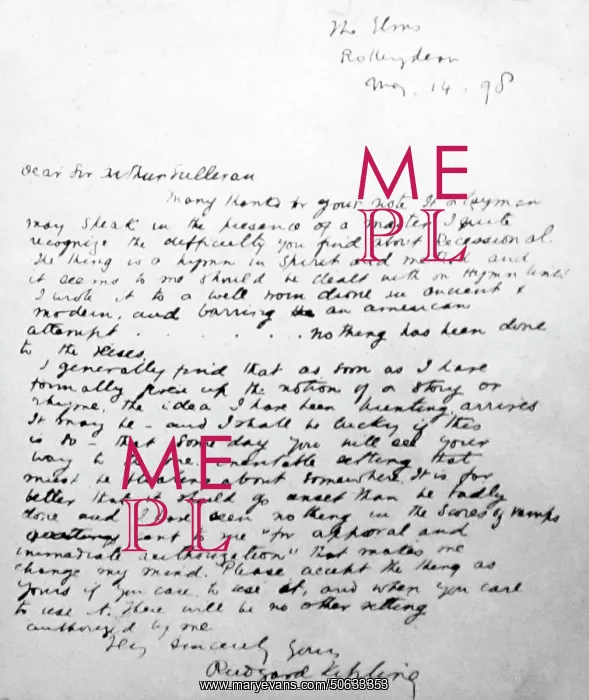 The Elms
Rottingdean
May. 14. 98
Dear Sir Arthur Sullivan
Many thanks for your note. If a layman
may speak in the presence of a master I quite
recognize the difficulty you find about Recessional.
The thing is a hymn in spirit and method and
it seems to me should be dealt with on hymn lines
I wrote it to a well worn in ancient &
modern, and barring an american
attempt . . . . . nothing has been done
to the verses.
I generally find that as soon as I have
formally given up the notion of a story or
rhyme, the idea I have been hunting arrives
It may be - and I shall be lucky if this
is so - that some day you will see your
way to the inevitable setting that
must be floating about somewhere. It is far
better that it should go unset than be badly
done and I have seen nothing in the scores of vamps
sent to me "for approval and
immediate authorization" that makes me
change my mind. Please accept the thing as
yours if you care to use it, and when you care
to use it. There will be no other setting
authorized by me
Very Sincerely Yours
Rudyard Kipling
ME
PL
ME
PL
www.maryevans.com/50639353